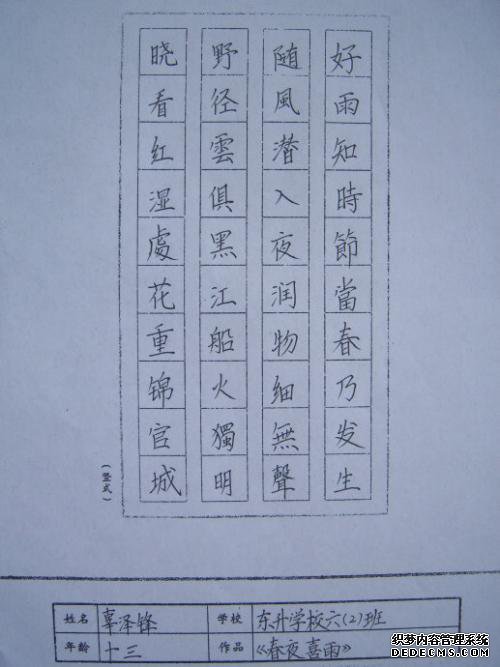 好雨知時節當春乃发生
随風潜入夜润物细無聲
野径雲俱黑江船火獨明
晓看红湿處花重锦官城
(竖式)
姓名 辜泽锋 学校 东升学校六(2)班
年龄 十三 作品 《春夜喜雨》
织梦内容管理系统
DEDECMS.COM